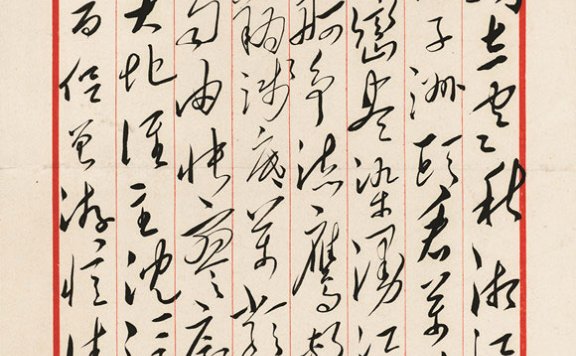 立寒秋湘江
子洲頭看萬山
巒盡染漫江
舸爭流鷹擊
翔淺底萬類
自由悵寥廓
大地誰主沈浮
百侶曾游憶往